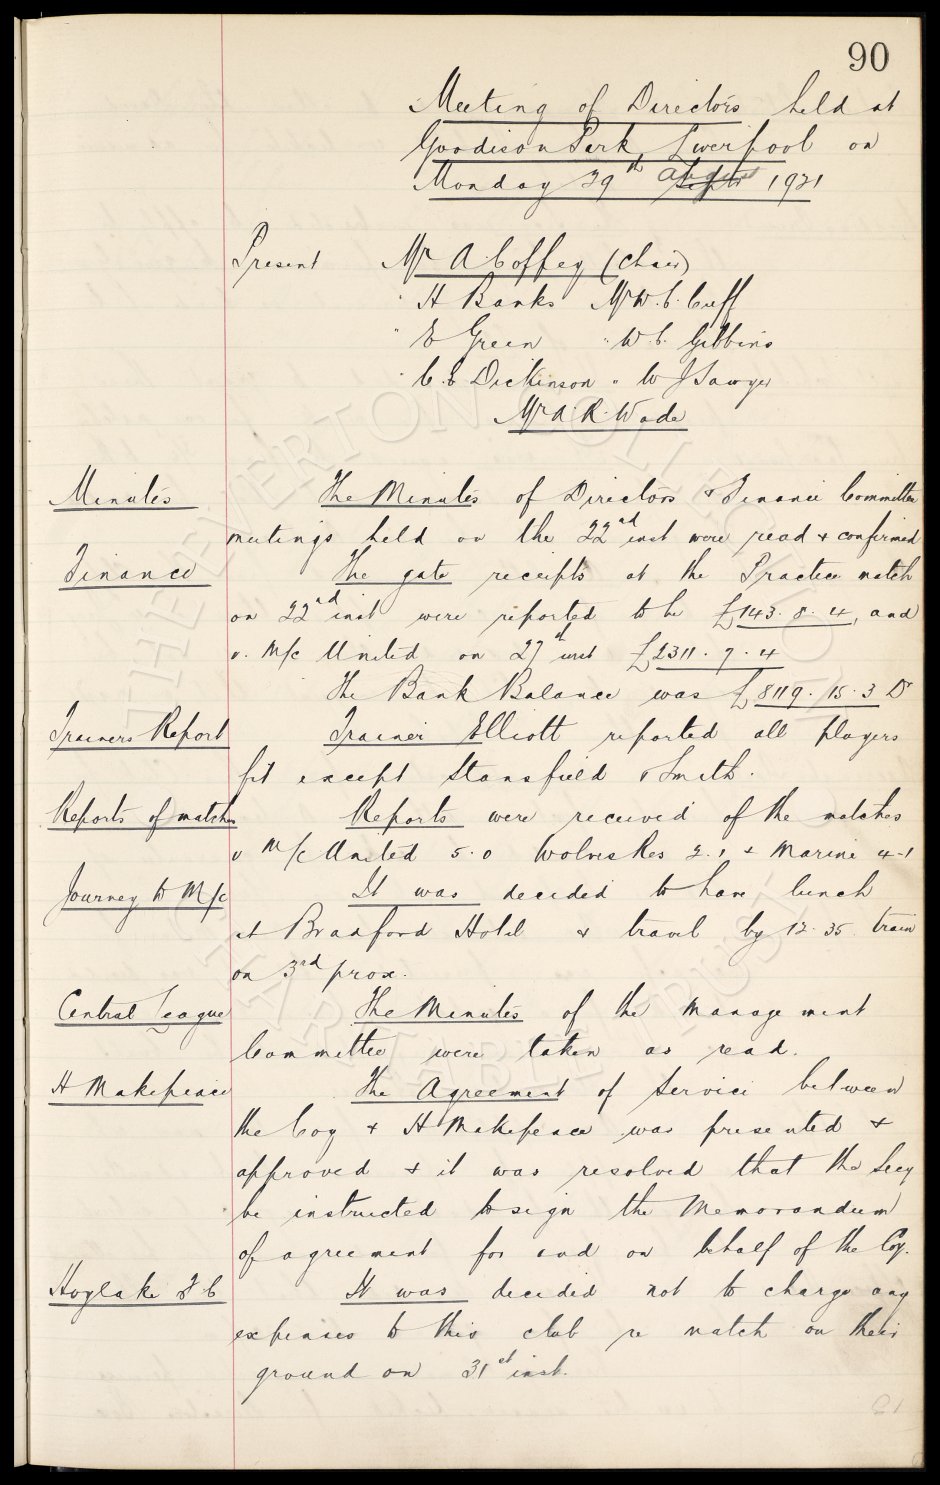 90
Meeting of Directors held at
Goodison Park, Liverpool on
Monday 29th Septr August 1921
Present Mr A Coffey (Chair)
" H Banks Mr W. C. Cuff
" E Green " W. C. Gibbins
" C. E Dickinson " W J Sawyer
Mr A. R. Wade
Minutes The Minutes of Directors & Finance Committee
meetings held on the 22nd inst were read & confirmed
Finance The gate receipts at the Practice match
on 22nd inst were reported to be £143. 8. 4, and
v. M/c United on 27th inst £2311. 7. 4
The Bank Balance was £8119. 15. 3 Dr
Trainers Report Trainer Elliott reported all players
fit except Stansfield & Smith.
Reports of matches Reports were received of the matches
v M/c United 5. 0 Wolves Res 2. 1 & Marine 4-1
Journey to M/c It was decided to have lunch
at Bradford Hotel & travel by 12. 35 train
on 3rd prox.
Central League The Minutes of the Management
Committee were taken as read.
H Makepeace The Agreement of Service between
the Coy & H Makepeace was presented &
approved & it was resolved that the Secy
be instructed to sign the Memorandum
of agreement for and on behalf of the Coy.
Hoylake F C It was decided not to charge any
expenses to this club re match on their
ground on 31st inst.
THE EVERTON COLLECTION
CHARITABLE TRUST